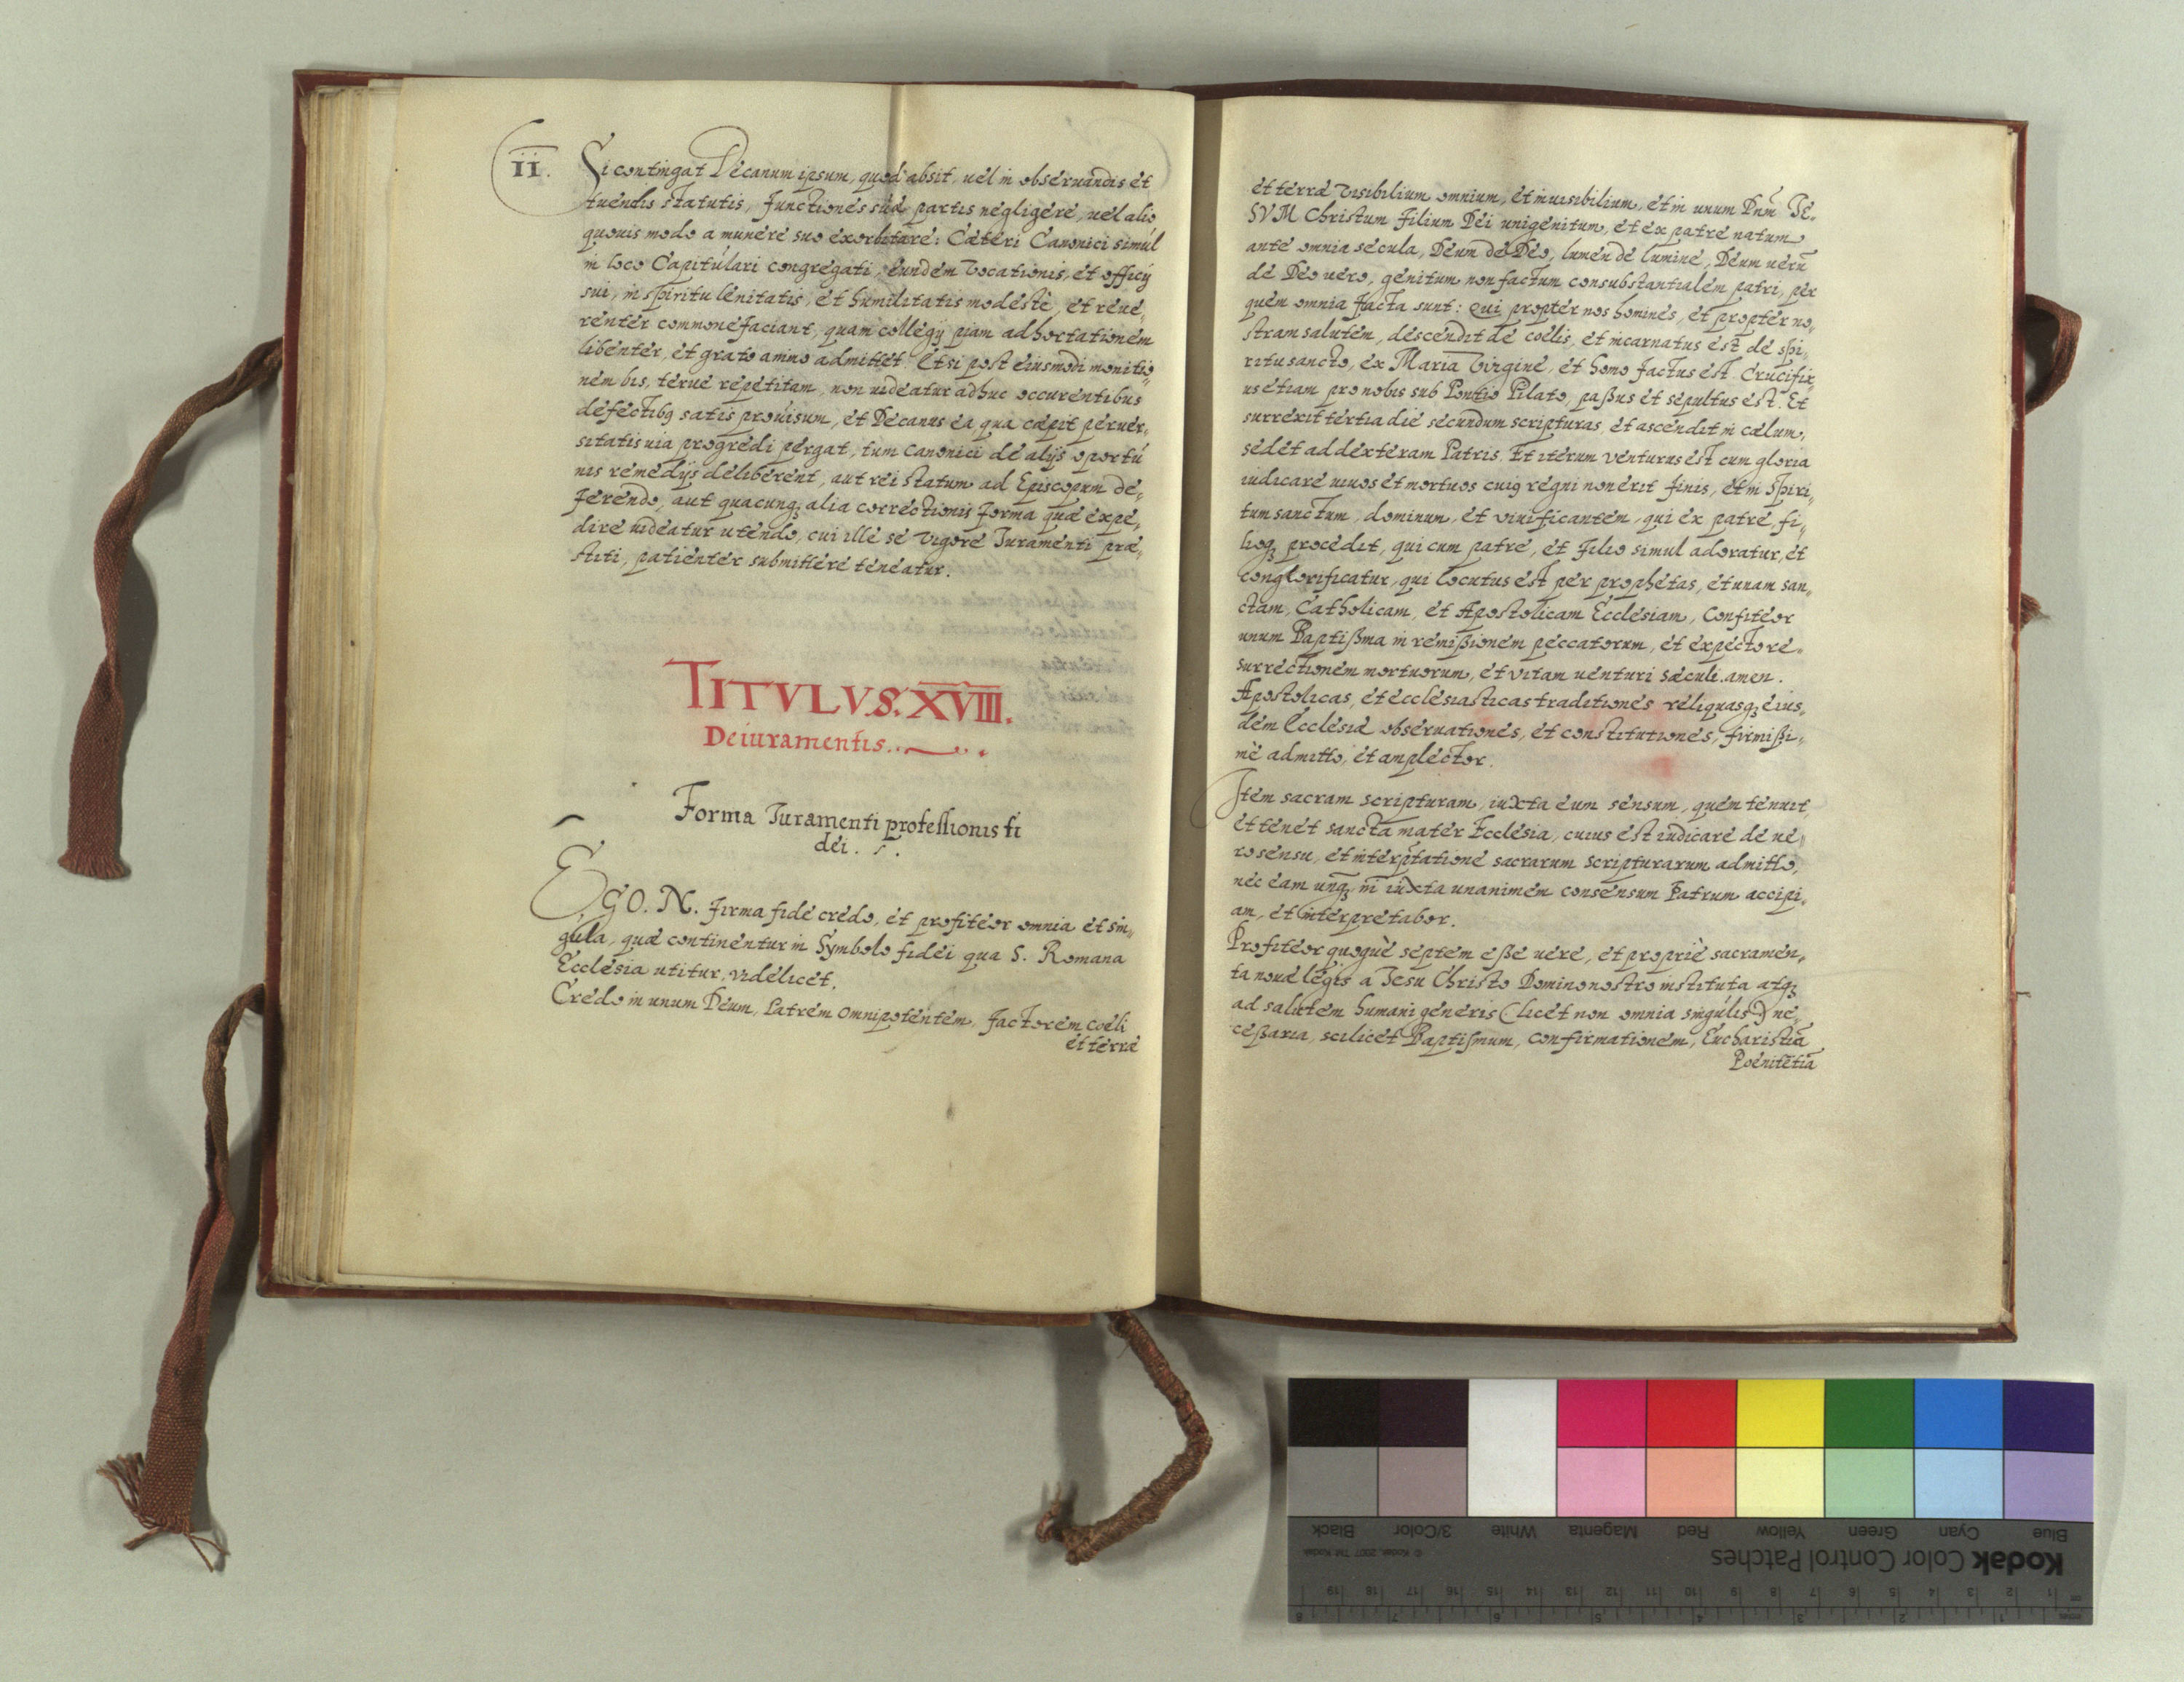 II.
Si contingat Decanum ipsum, quod absit, uel in obseruandis et
tuendis statutis, functiones suæ partis negligere, uel alio
quouis modo a munere suo exorbitare: Cæteri Canonici simúl
in loco Capitúlari congregati, eundem vocationis, et officij
sui, in spiritu lenitatis, et humilitatis modeste, et reue,,
renter commonefaciant, quam collegij piam adhortationem
libenter, et grato animo admittet. Et si post eiusmodi monitio,,
nem bis, terue repetitam, non uideatur adhuc occurentibus
defectibꝫ satis prouisum, et Decanus ea, qua cæpit peruer,,
sitatis uia progredi pergat, tum Canonici de alijs oportú
nis remedijs deliberent, aut rei statum ad Episcopum de,,
ferendo, aut quacunqꝫ alia correctionis forma quæ expe,,
dire uideatur utendo, cui ille se vigore Iuramenti præ,,
stiti, patienter submittere teneatur.
TITVLVS. XVIII.
De iuramentis..
Forma Iuramenti professionis fi
dei.
EGO. N. firma fide credo, et profiteor omnia et sin,,
gula, quæ continentur in Symbolo fidei qua S. Romana
Ecclesia utitur, videlicet.
Credo in unum Deum, Patrem omnipotentem, factorem coeli
et terræ
et terræ visibilium omnium, et inuisibilium, et in unum Dnm̄ IE,,
SVM Christum filium Dei unigenitum, et ex patre natum
ante omnia secula, Deum de Deo, lumen de lumine, Deum uerū
de Deo uero, genitum non factum consubstantialem patri, per
quem omnia facta sunt: qui propter nos homines, et propter no,,
stram salutem, descendit de coelis, et incarnatus est de spi,,
ritu sancto, ex Maria virgine, et homo factus est. Crucifix,,
us etiam pro nobis sub Pontio Pilato, paßus et sepultus est. Et
surrexit tertia die secundum scripturas, et ascendit in cælum,
sedet ad dexteram Patris. Et iterum venturus est cum gloria
iudicare uiuos et mortuos cuiꝫ regni non erit finis, et in spiri,,
tum sanctum, dominum, et viuificantem, qui ex patre, fi,,
lioqꝫ procedit, qui cum patre, et filio simul adoratur, et
conglorificatur, qui locutus est per prophetas, et unam san,,
ctam, Catholicam, et Apostolicam Ecclesiam, Confiteor
unum Baptißma in remißionem peccatorum, et expecto re,,
surrectionem mortuorum, et vitam uenturi sæculi. amen.
Apostolicas, et ecclesiasticas traditiones reliquasqꝫ eius,,
dem Ecclesiæ obseruationes, et constitutiones, firmißi,,
mè admitto, et amplector.
Item sacram scripturam, iuxta eum sensum, quem tenuit,
et tenet sancta mater Ecclesia, cuius est iudicare de ue,,
ro sensu, et interp̄tatione sacrarum scripturarum admitto,
nec eam unqꝫ ni iuxta unanimem consensum Patrum accipi,,
am, et interpretabor.
Profiteor quoquè septem eße uere, et propriè sacramen,,
ta nouæ legis a Iesu Christo Domino nostro instituta atqꝫ
ad salutem humani generis (licet non omnia singúlis) ne,,
ceßaria, scilicet Baptismum, confirmationem, Eucharistiā
Poenitētiā
Black 3/Color White Magenta Red Yellow Green Cyan Blue
Kodak Color Control Patches
© Kodak, 2007 TM: Kodak